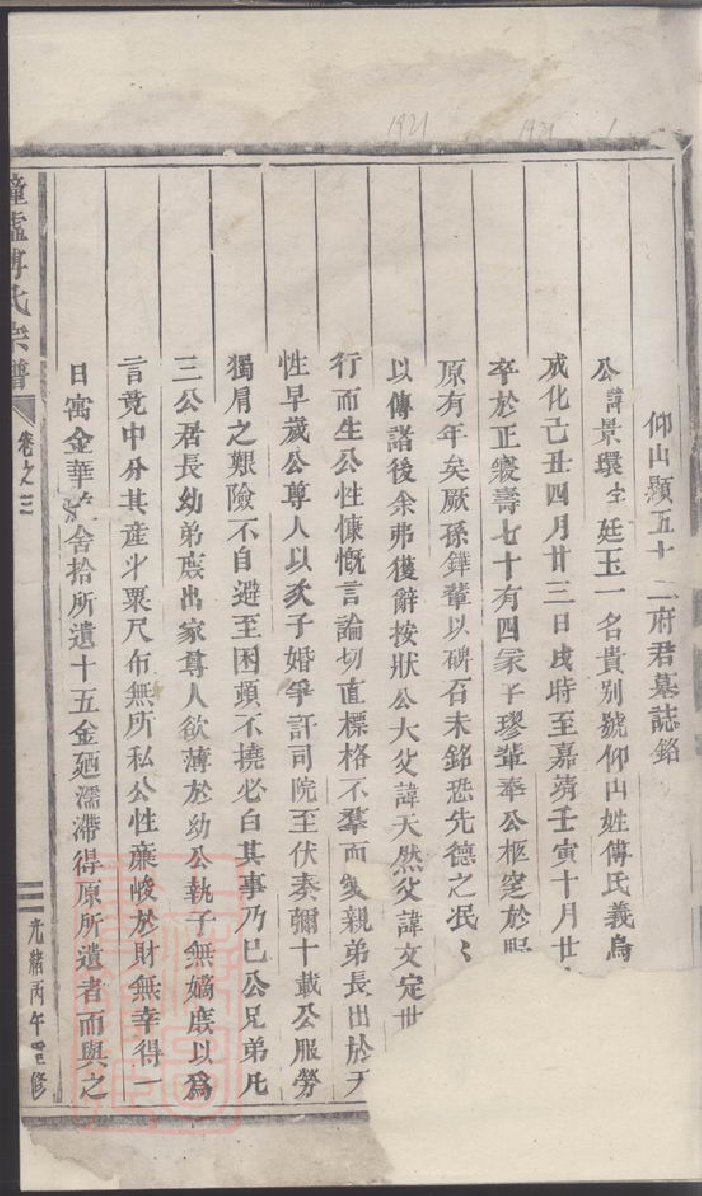 1921
1921
仰山顯五十二府君墓誌銘
公諱景環字廷玉一名貴別號仰山姓傅氏義烏
成化己丑四月廿三日戌時至嘉靖壬寅十月廿
卒於正寢壽七十有四冢子璆輩奉公柩窆於
原有年矣厥孫鏵輩以碑石未銘恐先德之泯〻
以傳諸後余弗獲辭按狀公大父諱天然父諱文定世
行而生公性慷慨言論切直標格不羣而篤親弟長出於天
性早歲公尊人以次子婚爭訐司院至伏奏彌十載公服勞
獨肩之艱險不自避至困頭不撓必白其事乃已公兄弟凡
三公居長幼弟庶出家尊人欲薄於幼公執子無嫡庶以爲
言竟中分其產斗粟尺布無所私公性廉峻於財無幸得一
日寓金華舍拾所遺十五金廼濡滯得原所遺者而與之
傅氏宗譜
卷之三
光緒丙午重修